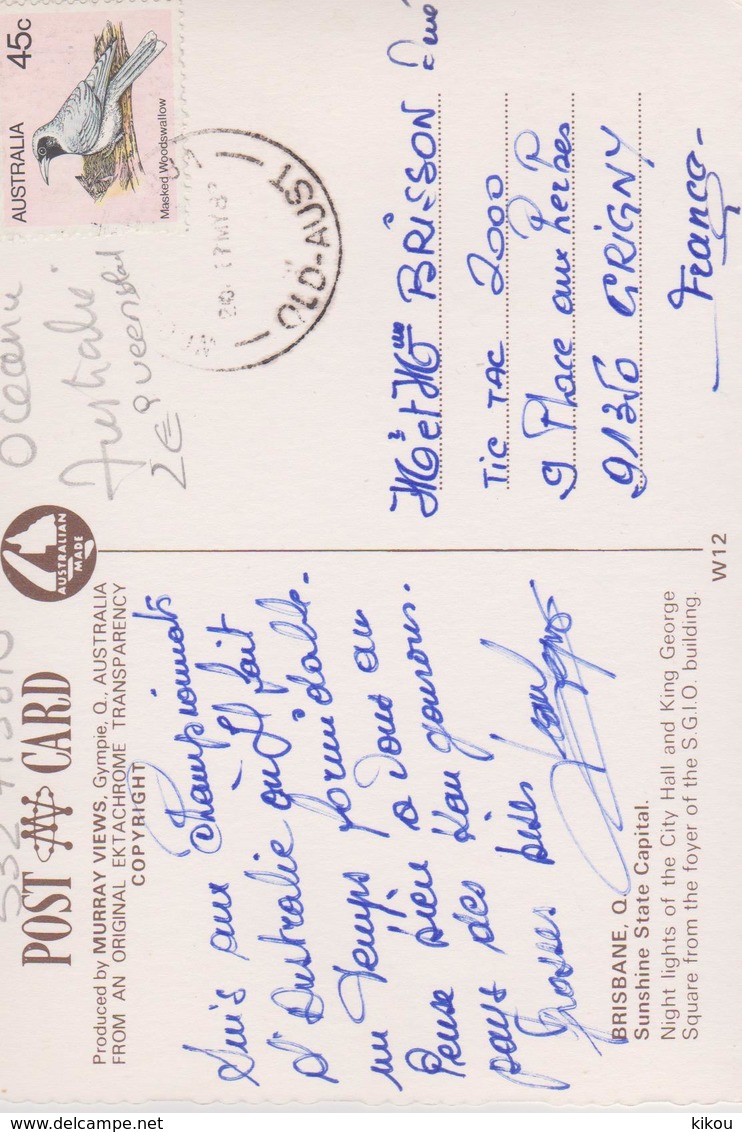 532 
POST CARD
Produced by MURRAY VIEWS, Gympie, Q., AUSTRALIA
FROM AN ORIGINAL EKTACHROME TRANSPARENCY
COPYRIGHT
AUSTRALIAN
MADE
Suis aux Championnats
d'Australie où Il fait
un temps formidable.
Pense bien à vous au
pays des Kangourous.
Grosses bises
BRISBANE, Q.
Sunshine State Capital.
Night lights of the City Hall and King George
Square from the foyer of the S.G.I.O. building.
W12
Australie
Queensland
2€
AUSTRALIA
45c
Masked Woodswallow
17MY8
QLD-AUST
Mr et Mme BRISSON
TIC TAC 2000
9 Place aux Herbes
91350 GRIGNY
France
delcampe.net
kikou